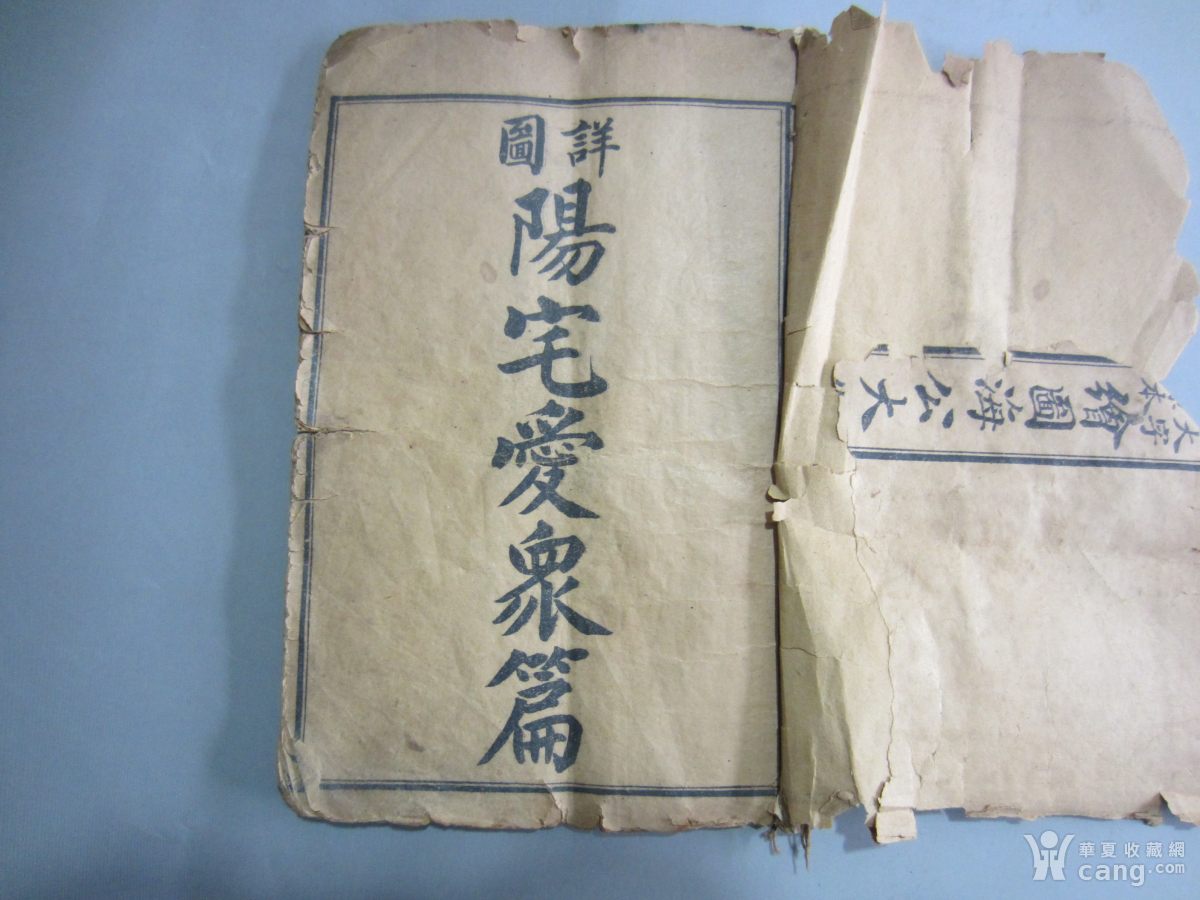 詳圖
陽宅愛衆篇
大字
本
繪圖海公大
華夏收藏網
cang.com